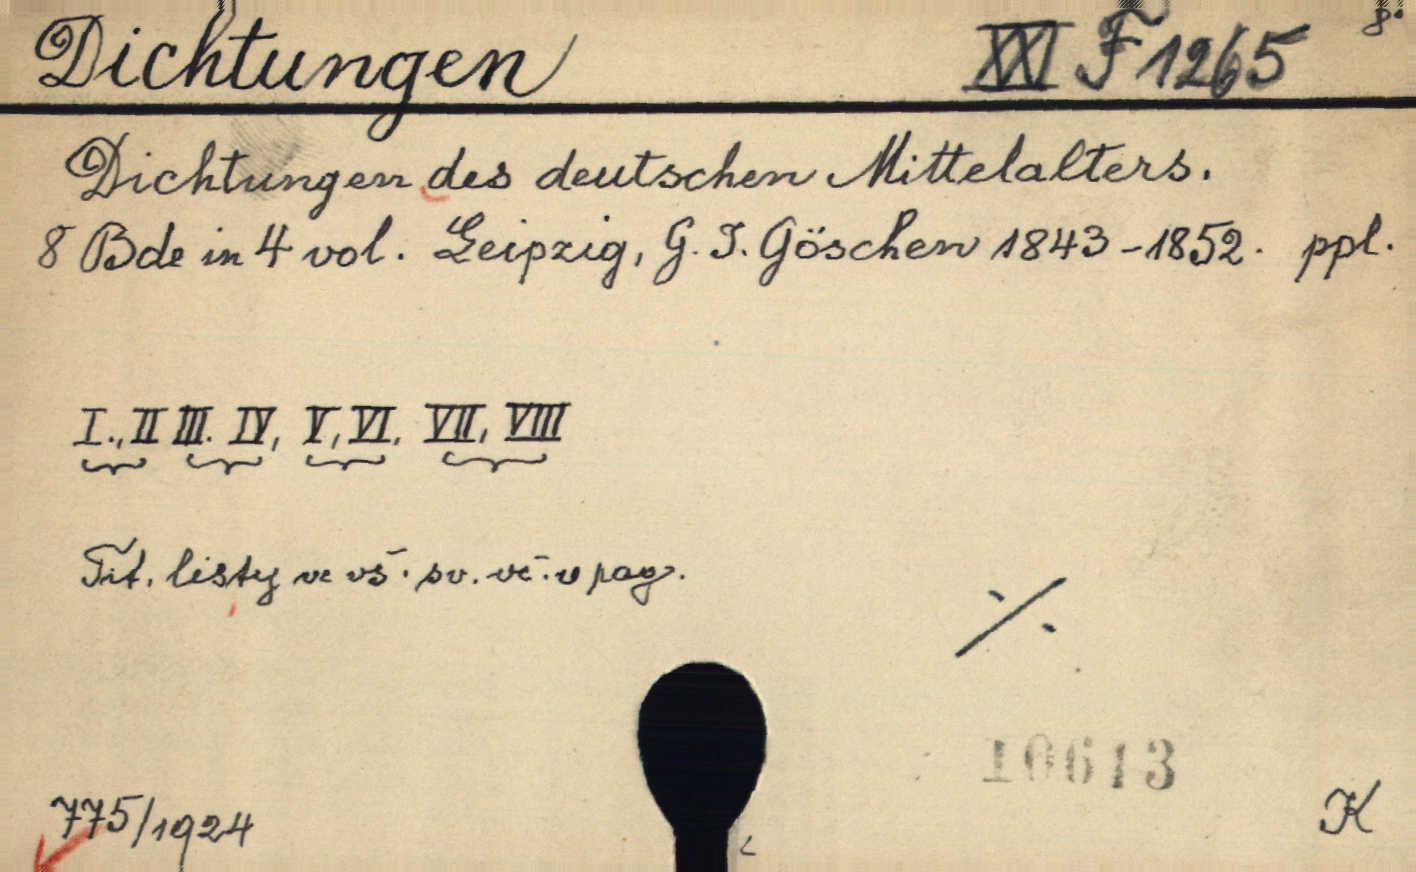 Dichtungen XXI F 1265 8°
Dichtungen des deutschen Mittelalters.
8 Bde in 4 vol. Leipzig, G. J. Göschen 1843-1852. ppl.
I., II III. IV, V, VI, VII, VIII
Tit. listy ve vš. sv. vč. v pag.
./.
10613
775/1924 K